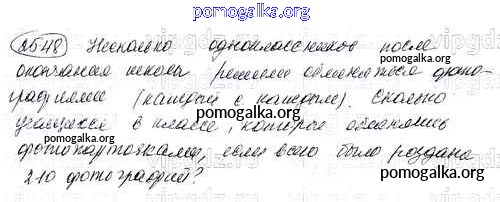 pomogalka.org
548 Несколько одноклассников после
окончания школы решили обменяться фото-
графиями (каждый с каждым). Сколько
учащихся в классе, которые обменялись
фотокарточками, если всего было роздано
210 фотографий?
pomogalka.org
pomogalka.org
pomogalka.org
pomogalka.org